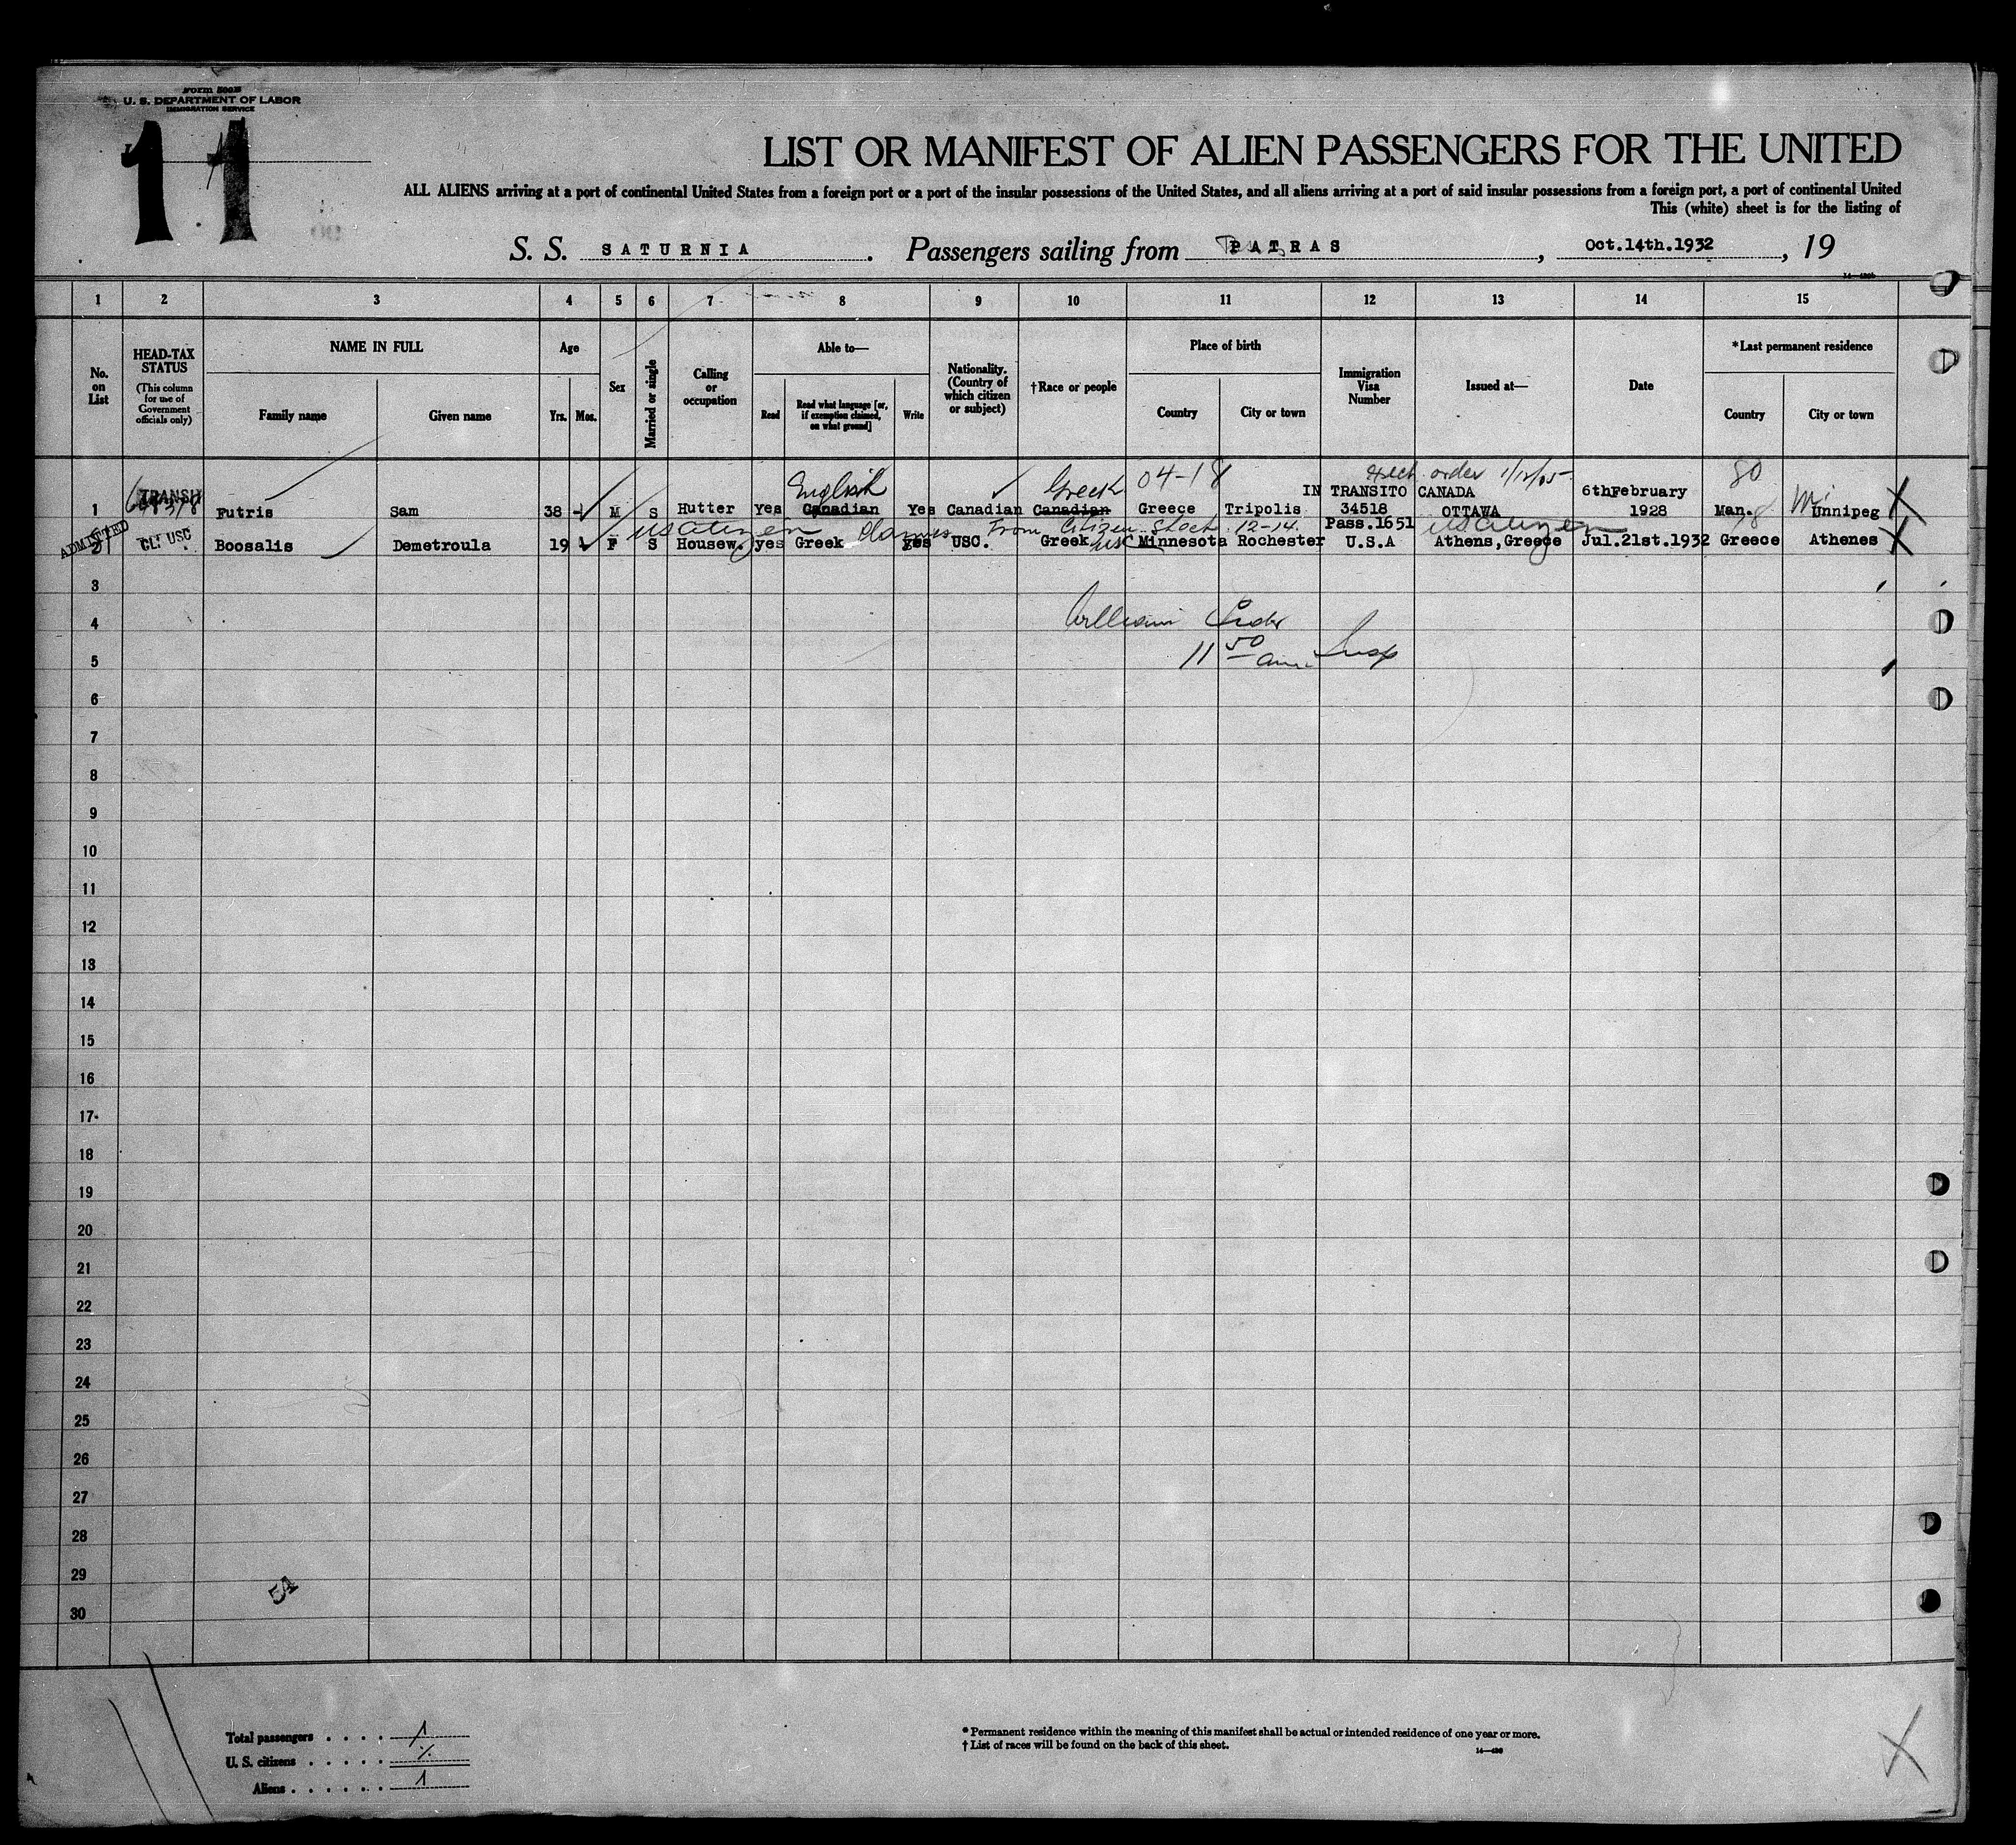 Form 500B
U. S. DEPARTMENT OF LABOR
IMMIGRATION SERVICE
11
LIST OR MANIFEST OF ALIEN PASSENGERS FOR THE UNITED
ALL ALIENS arriving at a port of continental United States from a foreign port or a port of the insular possessions of the United States, and all aliens arriving at a port of said insular possessions from a foreign port, a port of continental United
This (white) sheet is for the listing of
S. S. SATURNIA. Passengers sailing from PATRAS, Oct.14th.1932, 19
1 2 3 4 5 6 7 8 9 10 11 12 13 14 15
No. on List
HEAD-TAX STATUS
(This column for use of Government officials only)
NAME IN FULL
Family name Given name
Age
Yrs. Mos.
Sex
Married or single
Calling or occupation
Able to—
Read
Read what language [or, if exemption claimed, on what ground]
Write
Nationality. (Country of which citizen or subject)
†Race or people
Place of birth
Country City or town
Immigration Visa Number
Issued at—
Date
*Last permanent residence
Country City or town
English Greek 04-18 order 80
TRANSIT IN TRANSITO CANADA 6thFebruary
1 Futris Sam 38 - M S Hutter Yes Canadian Yes Canadian Canadian Greece Tripolis 34518 OTTAWA 1928 Man. Unnipeg
US citizen From Citizen Sheet 12-14. Pass.1651 US citizen
ADMITTED
2 CL: USC Boosalis Demetroula 19 F S Housew. yes Greek yes USC. Greek USC Minnesota Rochester U.S.A Athens,Greece Jul.21st.1932 Greece Athenes
3
4
William
5
11 50 am Insp
6
7
8
9
10
11
12
13
14
15
16
17
18
19
20
21
22
23
24
25
26
27
28
29
54
30
Total passengers . . . . 1
U. S. citizens . . . . .
Aliens . . . . . . 1
* Permanent residence within the meaning of this manifest shall be actual or intended residence of one year or more.
† List of races will be found on the back of this sheet.